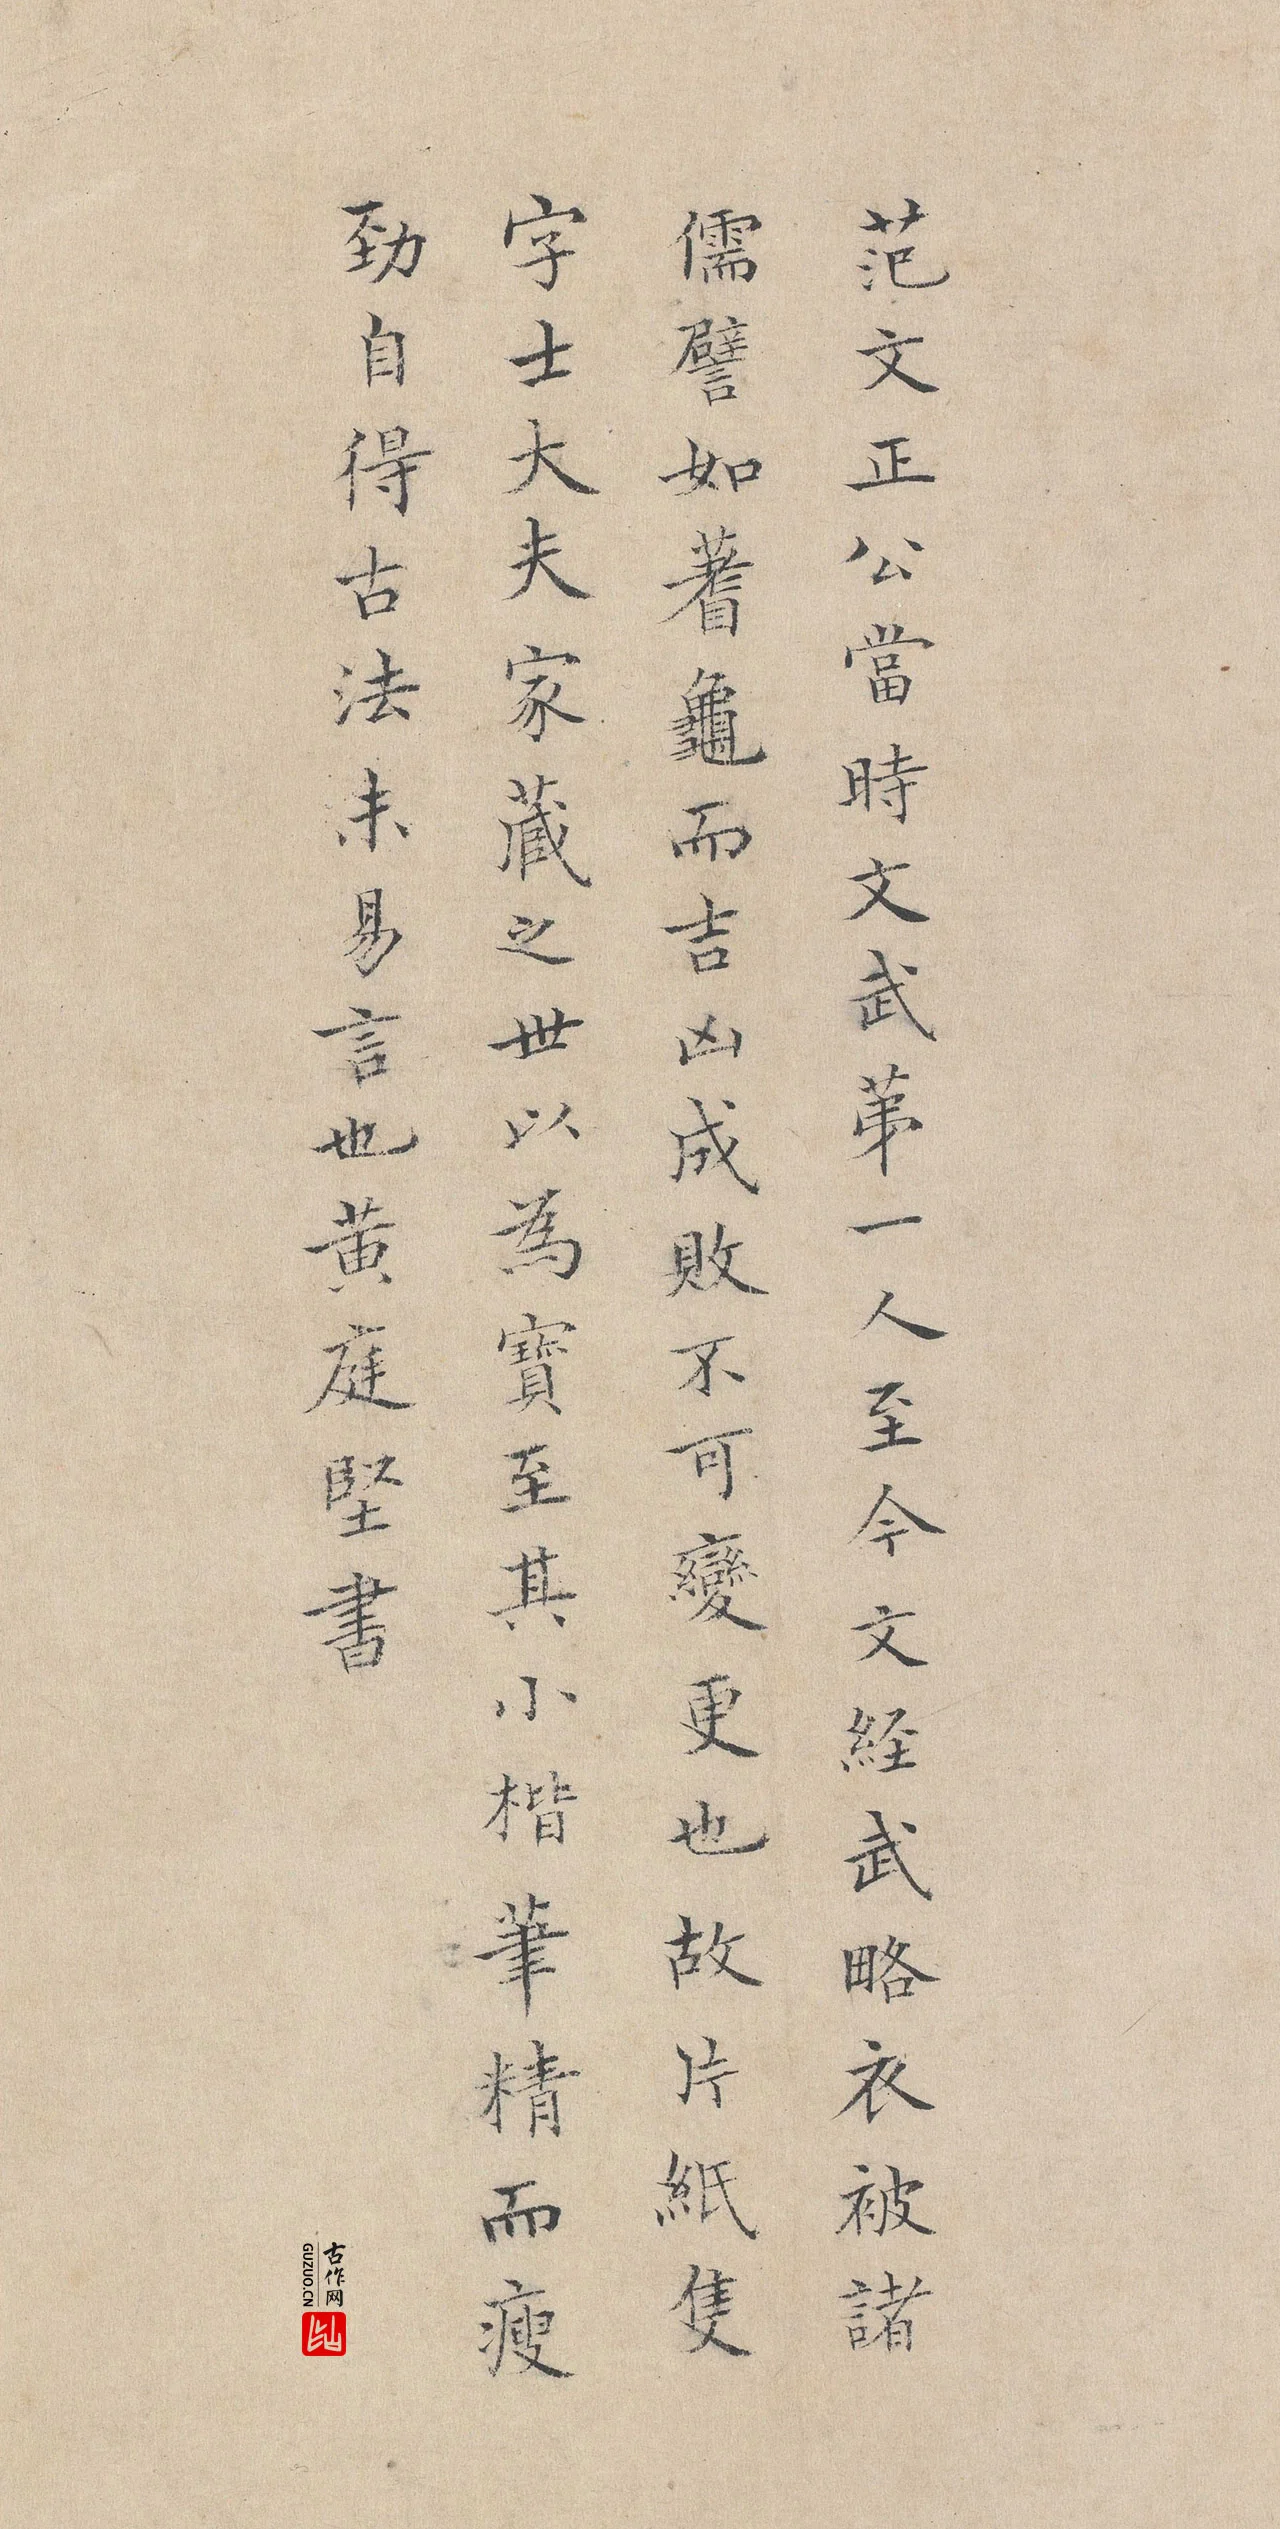 范文正公當時文武苐一人至今文経武略衣被諸
儒譬如蓍龜而吉凶成敗不可變更也故片紙隻
字士大夫家蔵之世以為寶至其小楷筆精而瘦
勁自得古法未易言也黄庭堅書
古作网
GUZUO.CN